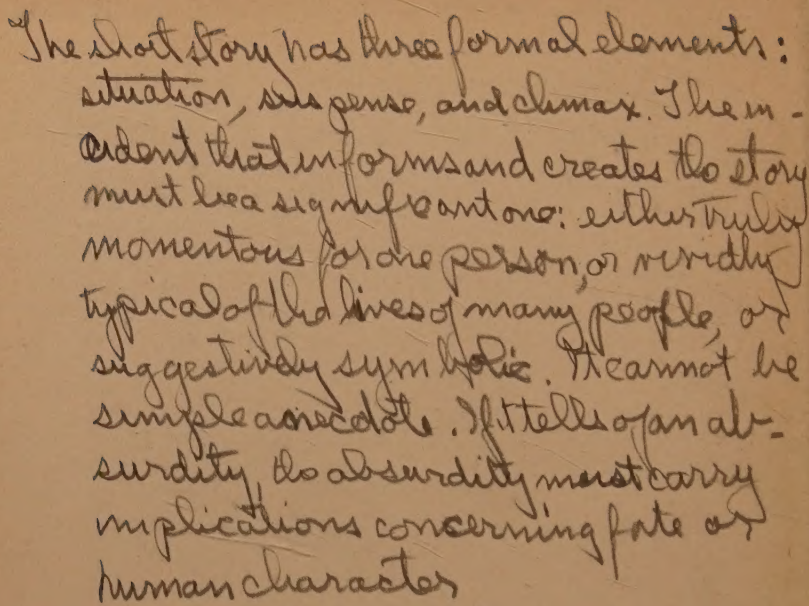 The short story has three formal elements:
situation, suspense, and climax. The in-
cident that informs and creates the story
must be a significant one: either truly
momentous for one person, or vividly
typical of the lives of many people, or
suggestively symbolic. It cannot be
simple anecdote. If it tells of an ab-
surdity, the absurdity must carry
implications concerning fate or
human character